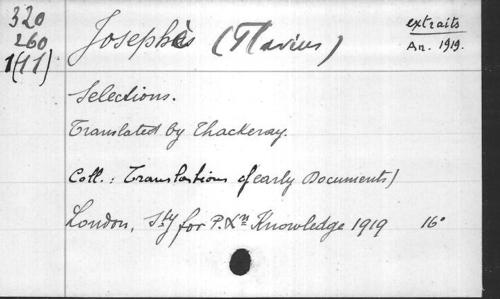 320
260
1(11)
Josephus (Flavius)
extraits
An. 1919.
Selections.
Translated by Thackeray.
Coll.: Translations of early Documents)
London, Sty for P. Xn Knowledge 1919 16°